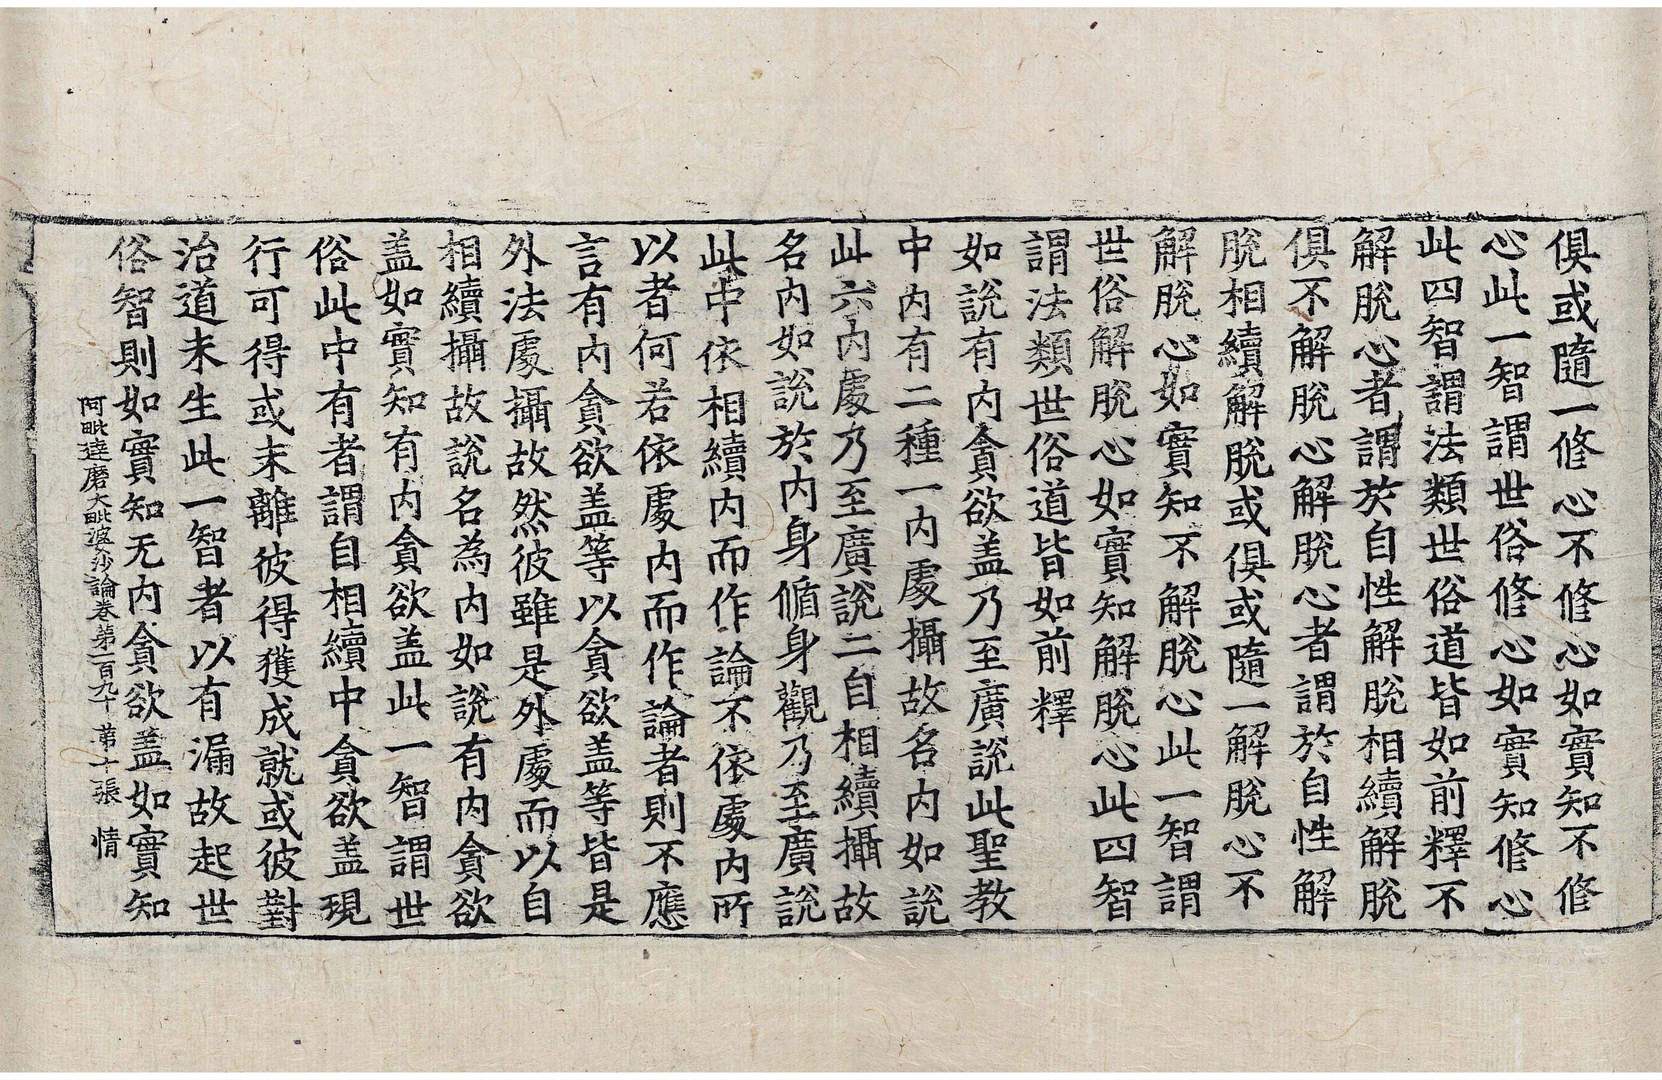 俱或隨一修心不修心如實知不修
心此一智謂世俗修心如實知修心
此四智謂法類世俗道皆如前釋不
解脫心者謂於自性解脫相續解脫
俱不解脫心解脫心者謂於自性解
脫相續解脫或俱或隨一解脫心不
解脫心如實知不解脫心此一智謂
世俗解脫心如實知解脫心此四智
謂法類世俗道皆如前釋
如說有內貪欲盖乃至廣說此聖教
中內有二種一內處攝故名內如說
此六內處乃至廣說二自相續攝故
名內如說於內身循身觀乃至廣說
此中依相續內而作論不依處內所
以者何若依處內而作論者則不應
言有內貪欲盖等以貪欲盖等皆是
外法處攝故然彼雖是外處而以自
相續攝故說名為內如說有內貪欲
盖如實知有內貪欲盖此一智謂世
俗此中有者謂自相續中貪欲盖現
行可得或未離彼得獲成就或彼對
治道未生此一智者以有漏故起世
俗智則如實知无內貪欲盖如實知
阿毗達磨大毗婆沙論卷第一百九十 第十張 情